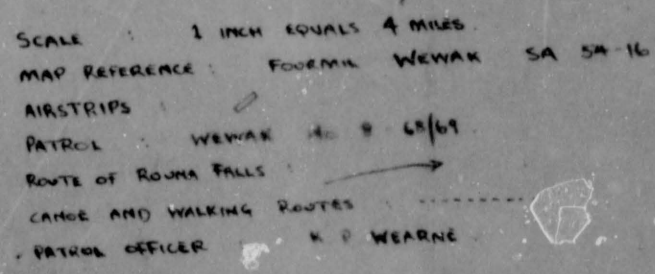 SCALE : 1 INCH EQUALS 4 MILES.
MAP REFERENCE : FOURMIL WEWAK SA 54-16
AIRSTRIPS :
PATROL : WEWAK No 8 68/69.
ROUTE OF ROUNA FALLS :
CANOE AND WALKING ROUTES :
PATROL OFFICER : K P WEARNE.